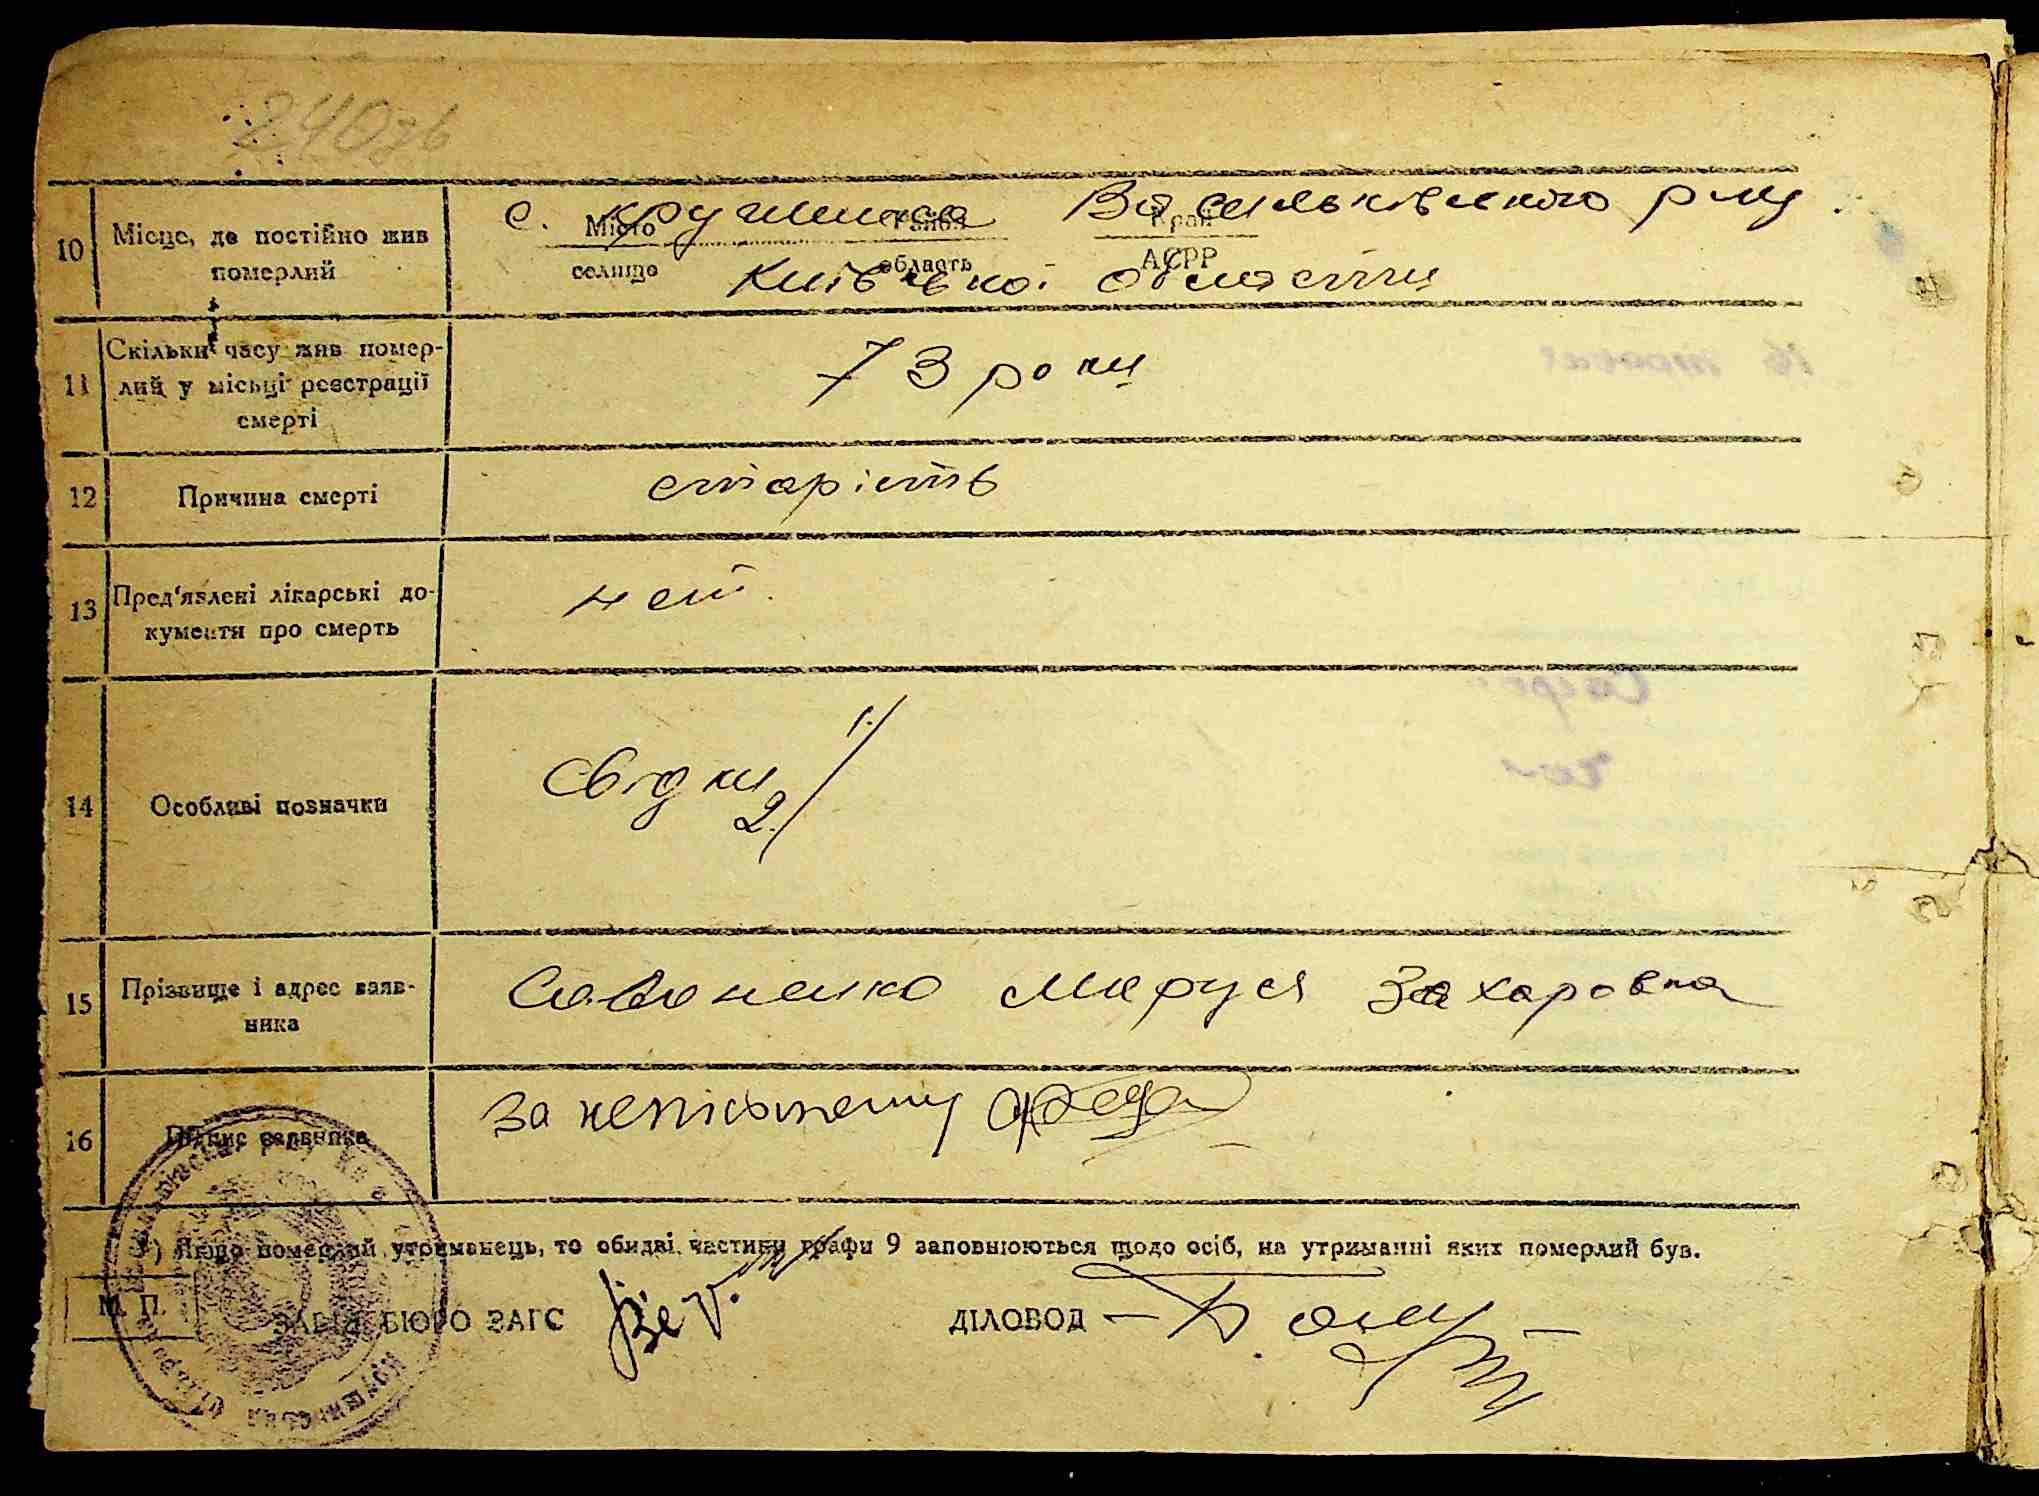 240зв
10 Місце, де постійно жив с. Крушинка Васильківського р-ну
Місто Район Край
померлий селище область АСРР
Київської області
11 Скільки часу жив помер-
лий у місьці реєстрації 73 роки
смерті
12 Причина смерті старість
13 Пред'явлені лікарські до- нет.
кументи про смерть
1.
14 Особливі позначки свідки
2.
15 Прізвище і адрес заяв- Савоненко Маруся Захаровна
ника
16 Підпис заявника за неписьменну
*) Якщо померлий утриманець, то обидві частини графи 9 заповнюються щодо осіб, на утриманні яких померлий був.
М. П. ЗАВІД. БЮРО ЗАГС ДІЛОВОД